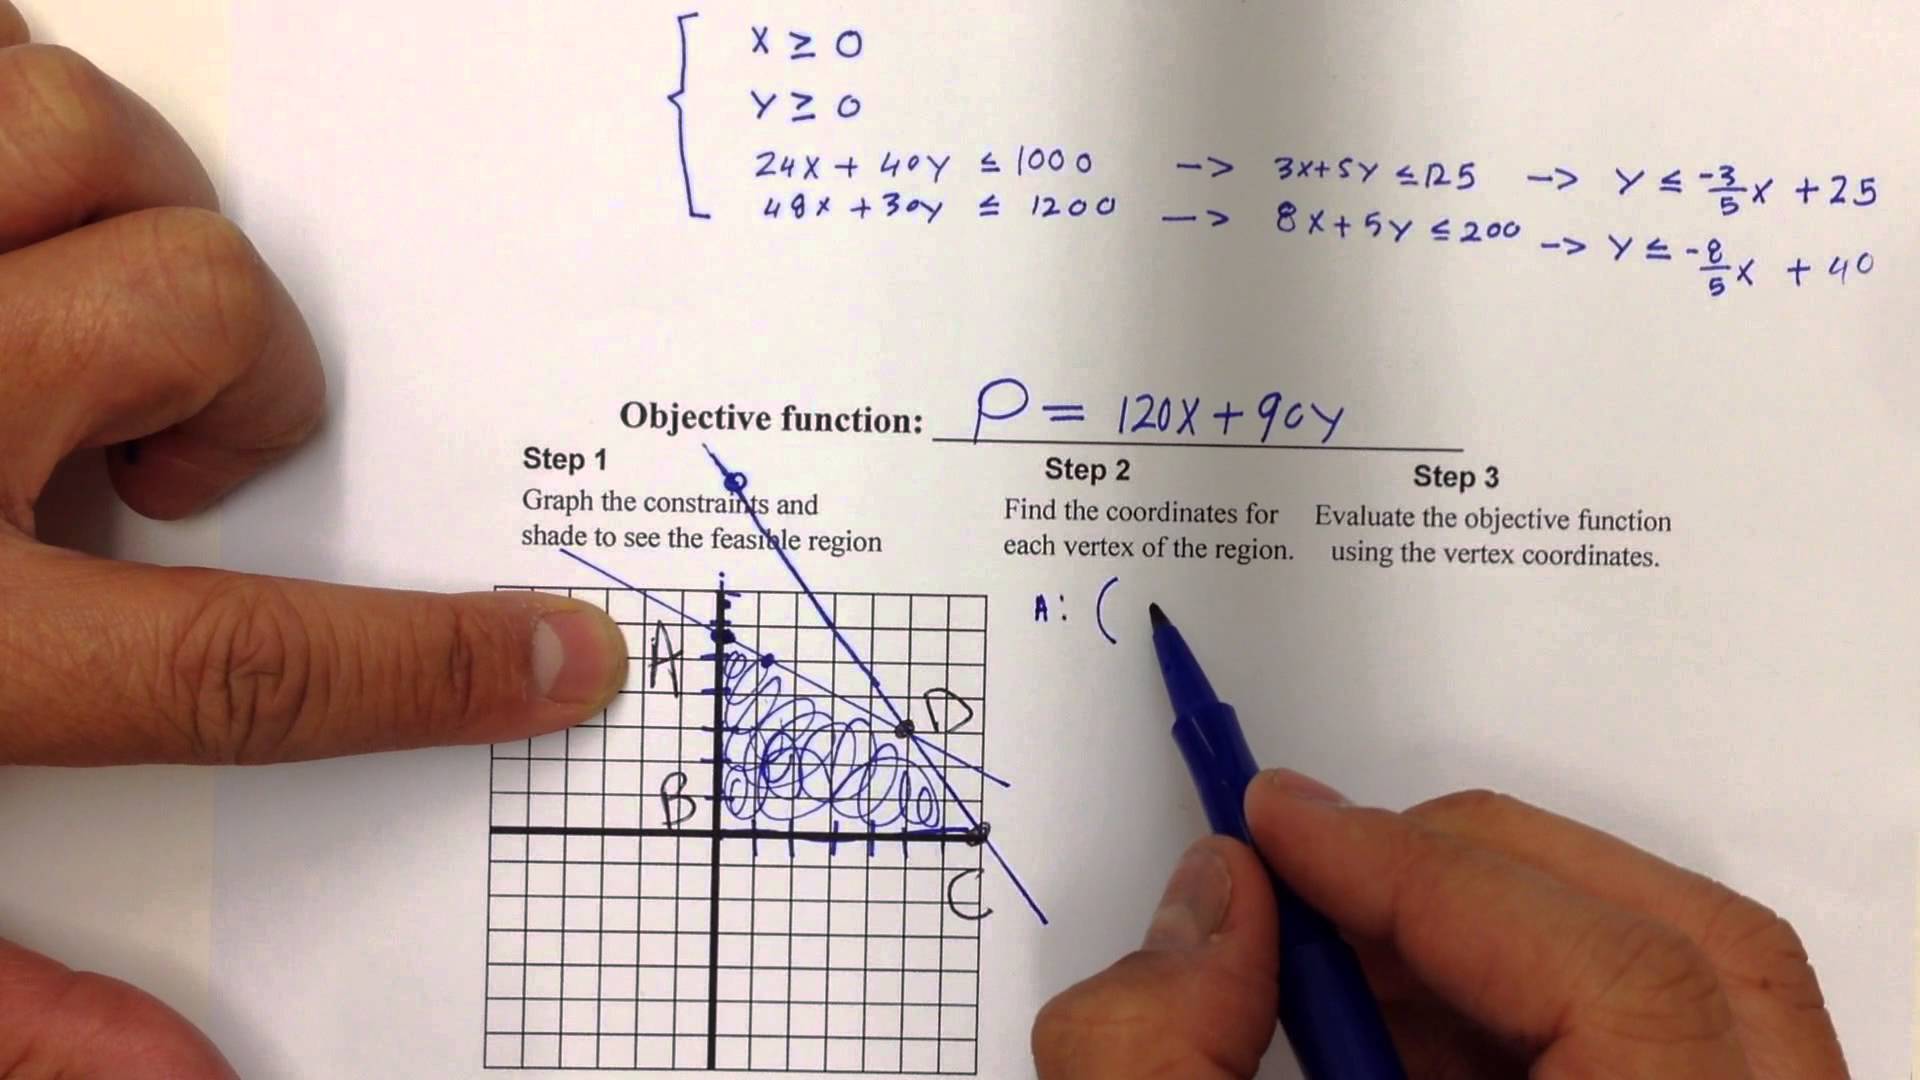 X ≥ 0
Y ≥ 0
24X + 40Y ≤ 1000 -> 3X+5Y ≤ 125 -> Y ≤ -3/5 X + 25
48X + 30Y ≤ 1200 -> 8X+5Y ≤ 200 -> Y ≤ -8/5 X + 40
Objective function: P = 120X + 90Y
Step 1
Graph the constraints and
shade to see the feasible region
Step 2
Find the coordinates for
each vertex of the region.
Step 3
Evaluate the objective function
using the vertex coordinates.
A: (
A
D
B
C